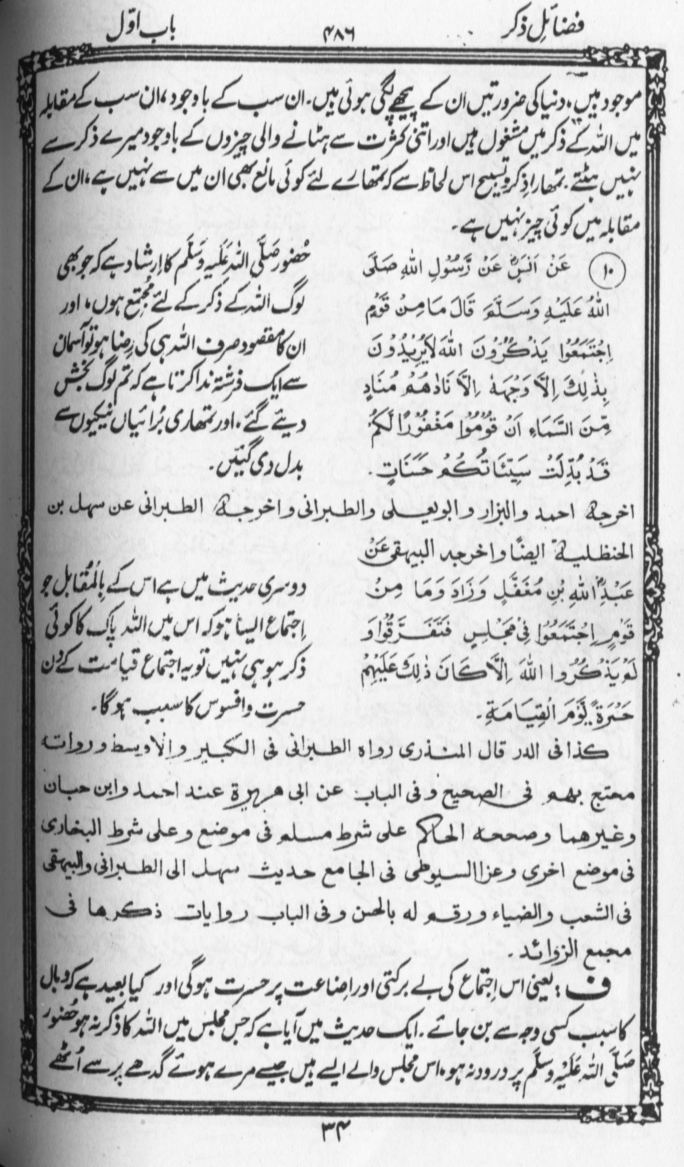 فضائلِ ذکر
۴۸۶
باب اوّل
موجود ہیں، دنیا کی ضرورتیں ان کے پیچھے لگی ہوئی ہیں۔ ان سب کے باوجود، ان سب کے مقابلہ
میں اللہ کے ذکر میں مشغول ہیں اور اتنی کثرت سے ہٹانے والی چیزوں کے باوجود میرے ذکر سے
نہیں ہٹتے۔ تمھارا ذکر و تسبیح اس لحاظ سے کہ تمھارے لئے کوئی مانع بھی ان میں سے نہیں ہے، ان کے
مقابلہ میں کوئی چیز نہیں ہے۔
(۱۰) عَنْ اَنَسٍؓ عَنْ رَّسُوْلِ اللهِ صَلَّى
اللهُ عَلَيْهِ وَسَلَّمَ قَالَ مَا مِنْ قَوْمٍ
اِجْتَمَعُوْا يَذْكُرُوْنَ اللهَ لَا يُرِيْدُوْنَ
بِذٰلِكَ اِلَّا وَجْهَهٗ اِلَّا نَادٰهُمْ مُنَادٍ
مِّنَ السَّمَاءِ اَنْ قُوْمُوْا مَغْفُوْرًا لَّكُمْ
قَدْ بُدِّلَتْ سَيِّئَاتُكُمْ حَسَنَاتٍ۔
حُضور صَلَّی اللہُ عَلَیْہِ وَسَلَّم کا ارشاد ہے کہ جو بھی
لوگ اللہ کے ذکر کے لئے مجتمع ہوں، اور
ان کا مقصود صرف اللہ ہی کی رِضا ہو تو آسمان
سے ایک فرشتہ ندا کرتا ہے کہ تم لوگ بخش
دیئے گئے، اور تمھاری بُرائیاں نیکیوں سے
بدل دی گئیں۔
اخرجہ احمد والبزار وابویعلی والطبرانی واخرجہ الطبرانی عن سھل بن
الحنظلیۃ ایضًا واخرجہ البیھقی عَنْ
عَبْدِ اللهِ بْنِ مُغَفَّلٍ وَزَادَ وَمَا مِنْ
قَوْمٍ اِجْتَمَعُوْا فِيْ مَجْلِسٍ فَتَفَرَّقُوْا وَ
لَمْ يَذْكُرُوا اللهَ اِلَّا كَانَ ذٰلِكَ عَلَيْهِمْ
حَسْرَةً يَّوْمَ الْقِيَامَةِ۔
دوسری حدیث میں ہے اس کے بِالمُقابِل جو
اجتماع ایسا ہو کہ اس میں اللہ پاک کا کوئی
ذکر ہو ہی نہیں تو یہ اجتماع قیامت کے دن
حسرت و افسوس کا سبب ہوگا۔
کذا فی الدر قال المنذری رواہ الطبرانی فی الکبیر والاوسط ورواتہ
محتج بھم فی الصحیح وفی الباب عن ابی ھریرۃ عند احمد وابن حبان
وغیرھما وصححہ الحاکم علی شرط مسلم فی موضع وعلی شرط البخاری
فی موضع اخری وعزا السیوطی فی الجامع حدیث سھل الی الطبرانی والبیھقی
فی الشعب والضیاء ورقم لہ بالحسن وفی الباب روایات ذکرھا فی
مجمع الزوائد۔
ف: یعنی اس اجتماع کی بے برکتی اور اضاعت پر حسرت ہوگی اور کیا بعید ہے کہ وبال
کا سبب کسی وجہ سے بن جائے۔ ایک حدیث میں آیا ہے کہ جس مجلس میں اللہ کا ذکر نہ ہو حُضور
صَلَّی اللہُ عَلَیْہِ وَسَلَّم پر درود نہ ہو، اس مجلس والے ایسے ہیں جیسے مرے ہوئے گدھے پر سے اُٹھے
۳۴